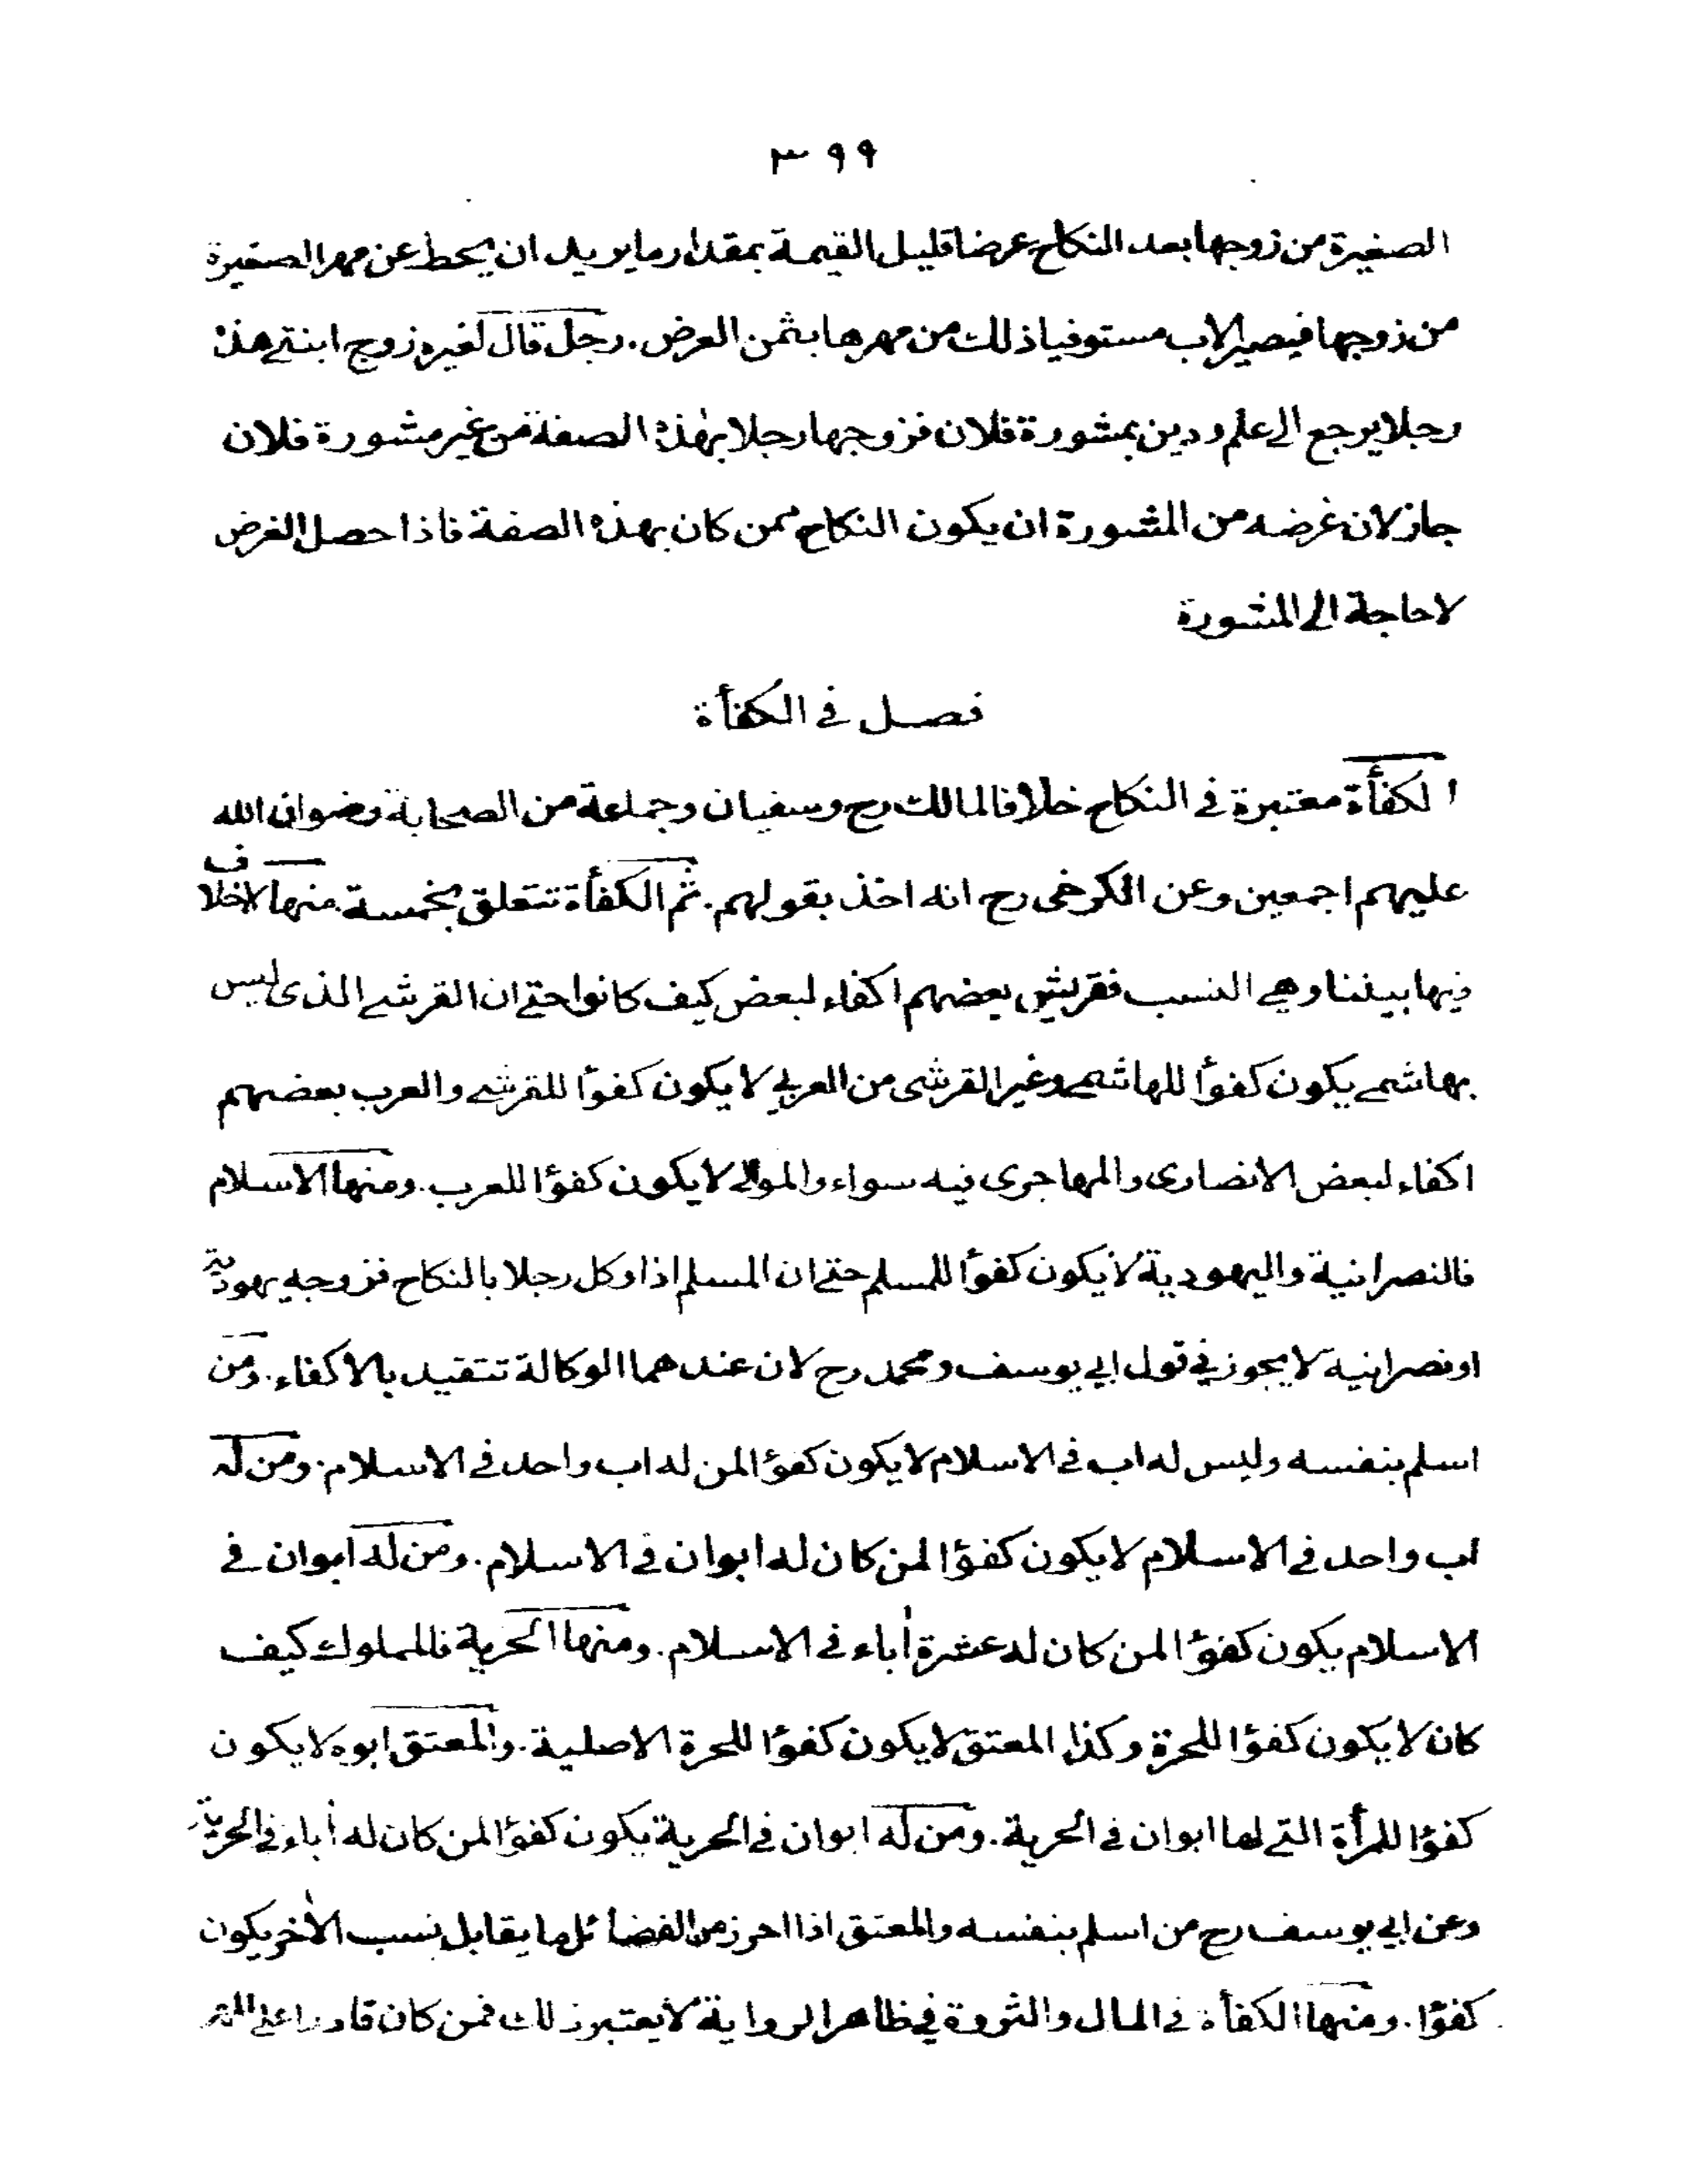 ٣٩٩
الصغيرة من زوجها بعد النكاح عرضا قليل القيمة بمقدار ما يريد ان يحط عن مهر الصغيرة
من زوجها فيصير الاب مستوفيا ذلك من مهرها بثمن العرض. رجل قال لغيره زوج ابنتي هذه
رجلا يرجع الى علم ودين بمشورة فلان فزوجها رجلا بهذه الصفة من غير مشورة فلان
جاز لان غرضه من المشورة ان يكون النكاح ممن كان بهذه الصفة فاذا حصل الغرض
لا حاجة الى المشورة
فصل في الكفأة
الكفأة معتبرة في النكاح خلافا لمالك رح وسفيان وجماعة من الصحابة رضوان الله
عليهم اجمعين وعن الكرخى رح انه اخذ بقولهم. ثم الكفأة تتعلق بخمسة منها لا خلاف
فيها بيننا وهي النسب فقريش بعضهم اكفاء لبعض كيف كانوا حتى ان القرشي الذى ليس
بهاشمي يكون كفوًا للهاشمي وغير القرشى من العربي لا يكون كفوًا للقرشي والعرب بعضهم
اكفاء لبعض الانصارى والمهاجرى فيه سواء والموالي لا يكون كفوًا للعرب. ومنها الاسلام
فالنصرانية واليهودية لا يكون كفوًا للمسلم حتى ان المسلم اذا وكل رجلا بالنكاح فزوجه يهودية
او نصرانية لا يجوز في قول ابي يوسف ومحمد رح لان عندهما الوكالة تتقيد بالاكفاء. ومن
اسلم بنفسه وليس له اب في الاسلام لا يكون كفؤا لمن له اب واحد في الاسلام. ومن له
اب واحد في الاسلام لا يكون كفؤا لمن كان له ابوان في الاسلام. ومن له ابوان في
الاسلام يكون كفؤا لمن كان له عشرة اٰباء في الاسلام. ومنها الحرية فالمملوك كيف
كان لا يكون كفؤا للحرة وكذا المعتق لا يكون كفوًا للحرة الاصلية. والمعتق ابوه لا يكون
كفؤا للمرأة التي لها ابوان في الحرية. ومن له ابوان في الحرية يكون كفؤا لمن كان له اٰباء في الحرية
وعن ابي يوسف رح من اسلم بنفسه والمعتق اذا احرز من الفضائل ما يقابل نسب الاٰخر يكون
كفوًا. ومنها الكفأة في المال والثروة في ظاهر الرواية لا يعتبر ذلك فمن كان قادرا على المهر